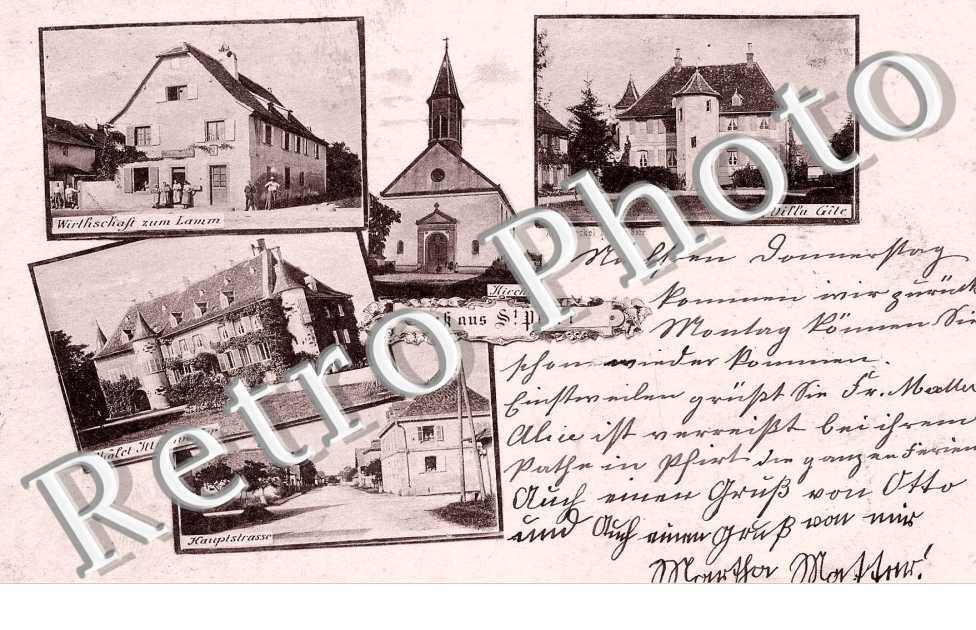 Wirthschaft zum Lamm
Villa Gite
Kirche
aus St
Hauptstrasse
Retro Photo
Nächsten Donnerstag
kommen wir zurück
Montag können Sie
schon wieder kommen.
Einstweilen grüßt Sie Fr. Matter
Alice ist verreißt bei ihrem
Pathe in Pfirt die ganzen Ferien
Auch einen Gruß von Otto
und Auch einen Gruß von mir
Martha Matter!